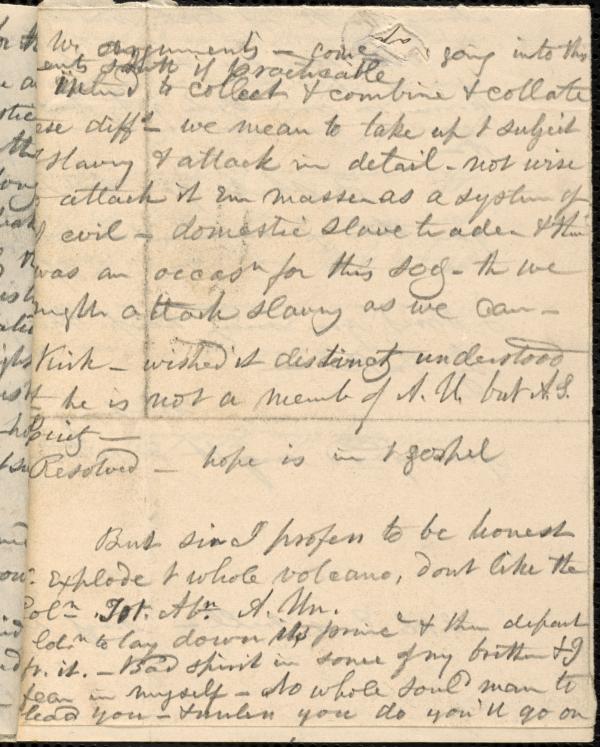 We arguments - come going into this
ents south if practicable
intend to collect & combine & collate
ese diffᵗ - we mean to take up t subject
Slavery & attack in detail - not wise
attack it En masse as a system of
evil - domestic slave trade & this
was an occasⁿ for this soc - th we
might attack slavery as we can -
Kirk - wished it distinctʸ understood
t he is not a memb of A. U. but A.S.
Ciety -
Resolved - hope is in t gospel
But sin I profess to be honest
explode t whole volcano, dont like the
Colⁿ. Tot. Abⁿ. A. Un.
to lay down its princˢ & then depart
fr. it. - Bad spirit in some of my brethⁿ & I
fear in myself - No whole soulᵈ man to
lead you - & unless you do you'll go on